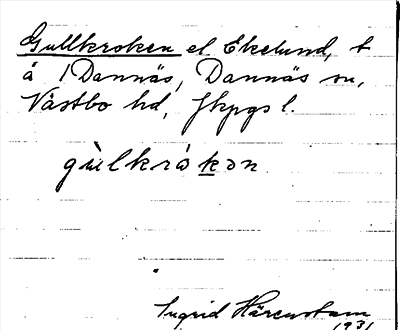 Gullkroken el. Ekelund, t
å 1 Dannäs, Dannäs sn,
Västbo hd, Jkpgs l.
gùlkrókən
Ingrid Härenstam
1931